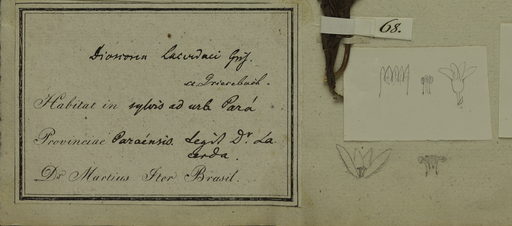 Dioscorea Lacerdaei Gris.
ex Grisebach.
Habitat in sylvis ad urb Pará
Provinciae Paraënsis. Legit Dr. La
cerda.
Dr. Martius Iter Brasil.
68.